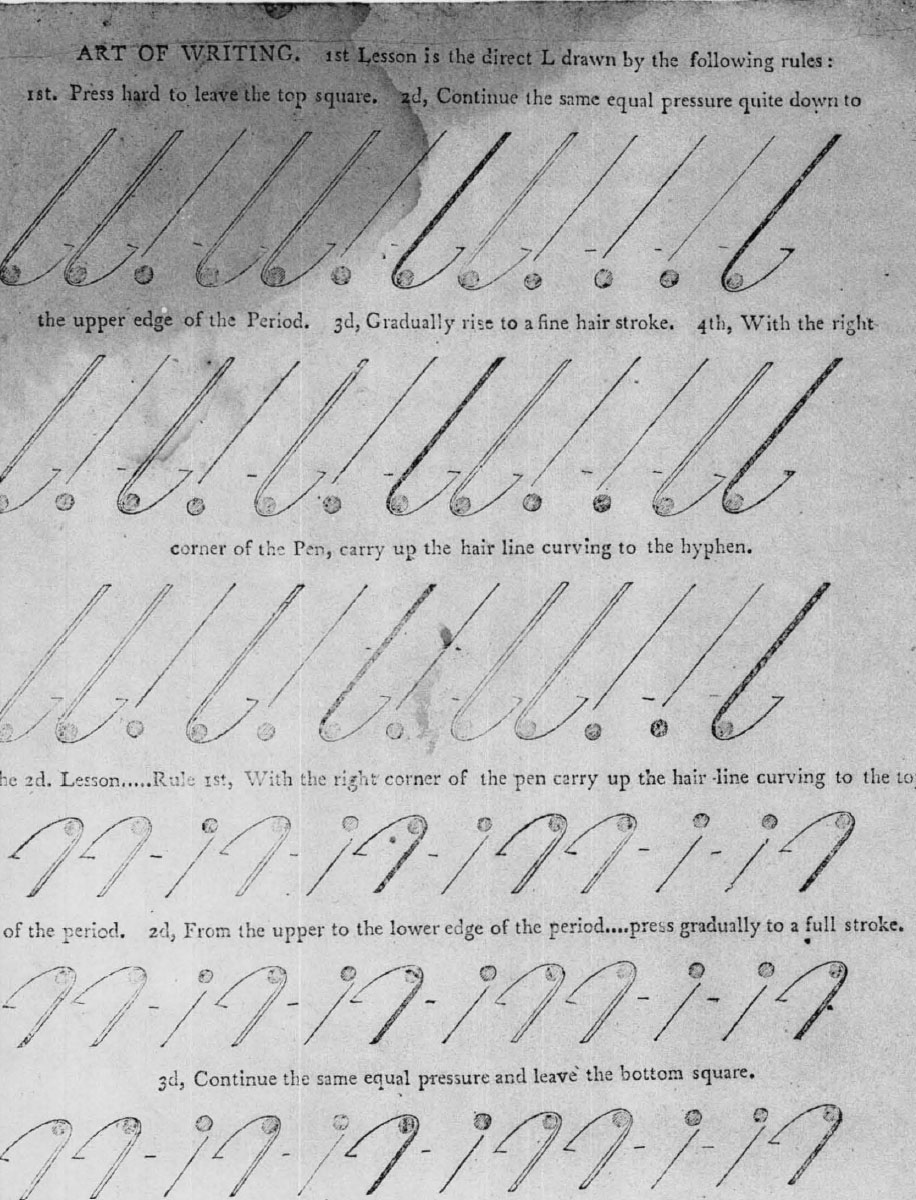 ART OF WRITING. 1st Lesson is the direct L drawn by the following rules:
1st. Press hard to leave the top square. 2d, Continue the same equal pressure quite down to
the upper edge of the Period. 3d, Gradually rise to a fine hair stroke. 4th, With the right
corner of the Pen, carry up the hair line curving to the hyphen.
2d. Lesson.....Rule 1st, With the right corner of the pen carry up the hair-line curving to the
of the period. 2d, From the upper to the lower edge of the period....press gradually to a full stroke.
3d, Continue the same equal pressure and leave the bottom square.